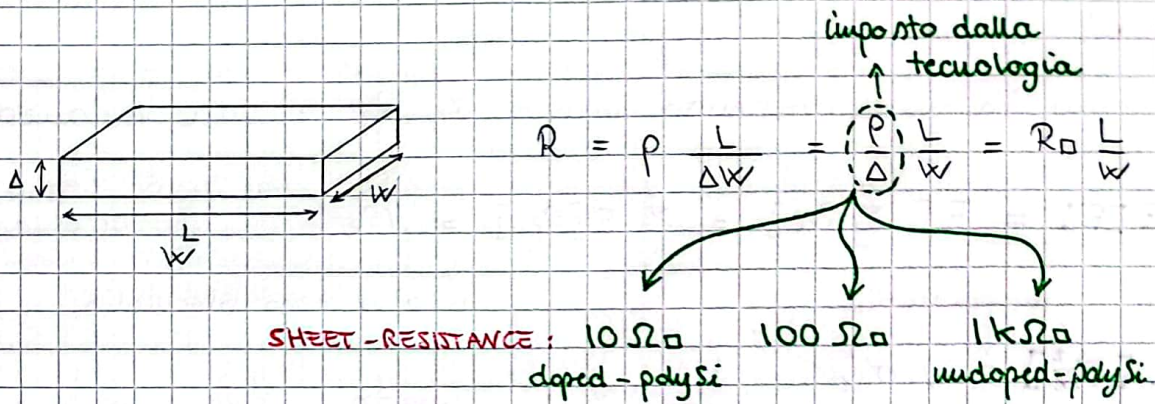 imposto dalla
tecnologia
R = ρ L/ΔW = ρ/Δ L/W = R□ L/W
Δ
W
L
W
SHEET-RESISTANCE: 10 Ω□ 100 Ω□ 1kΩ□
doped-polySi undoped-polySi